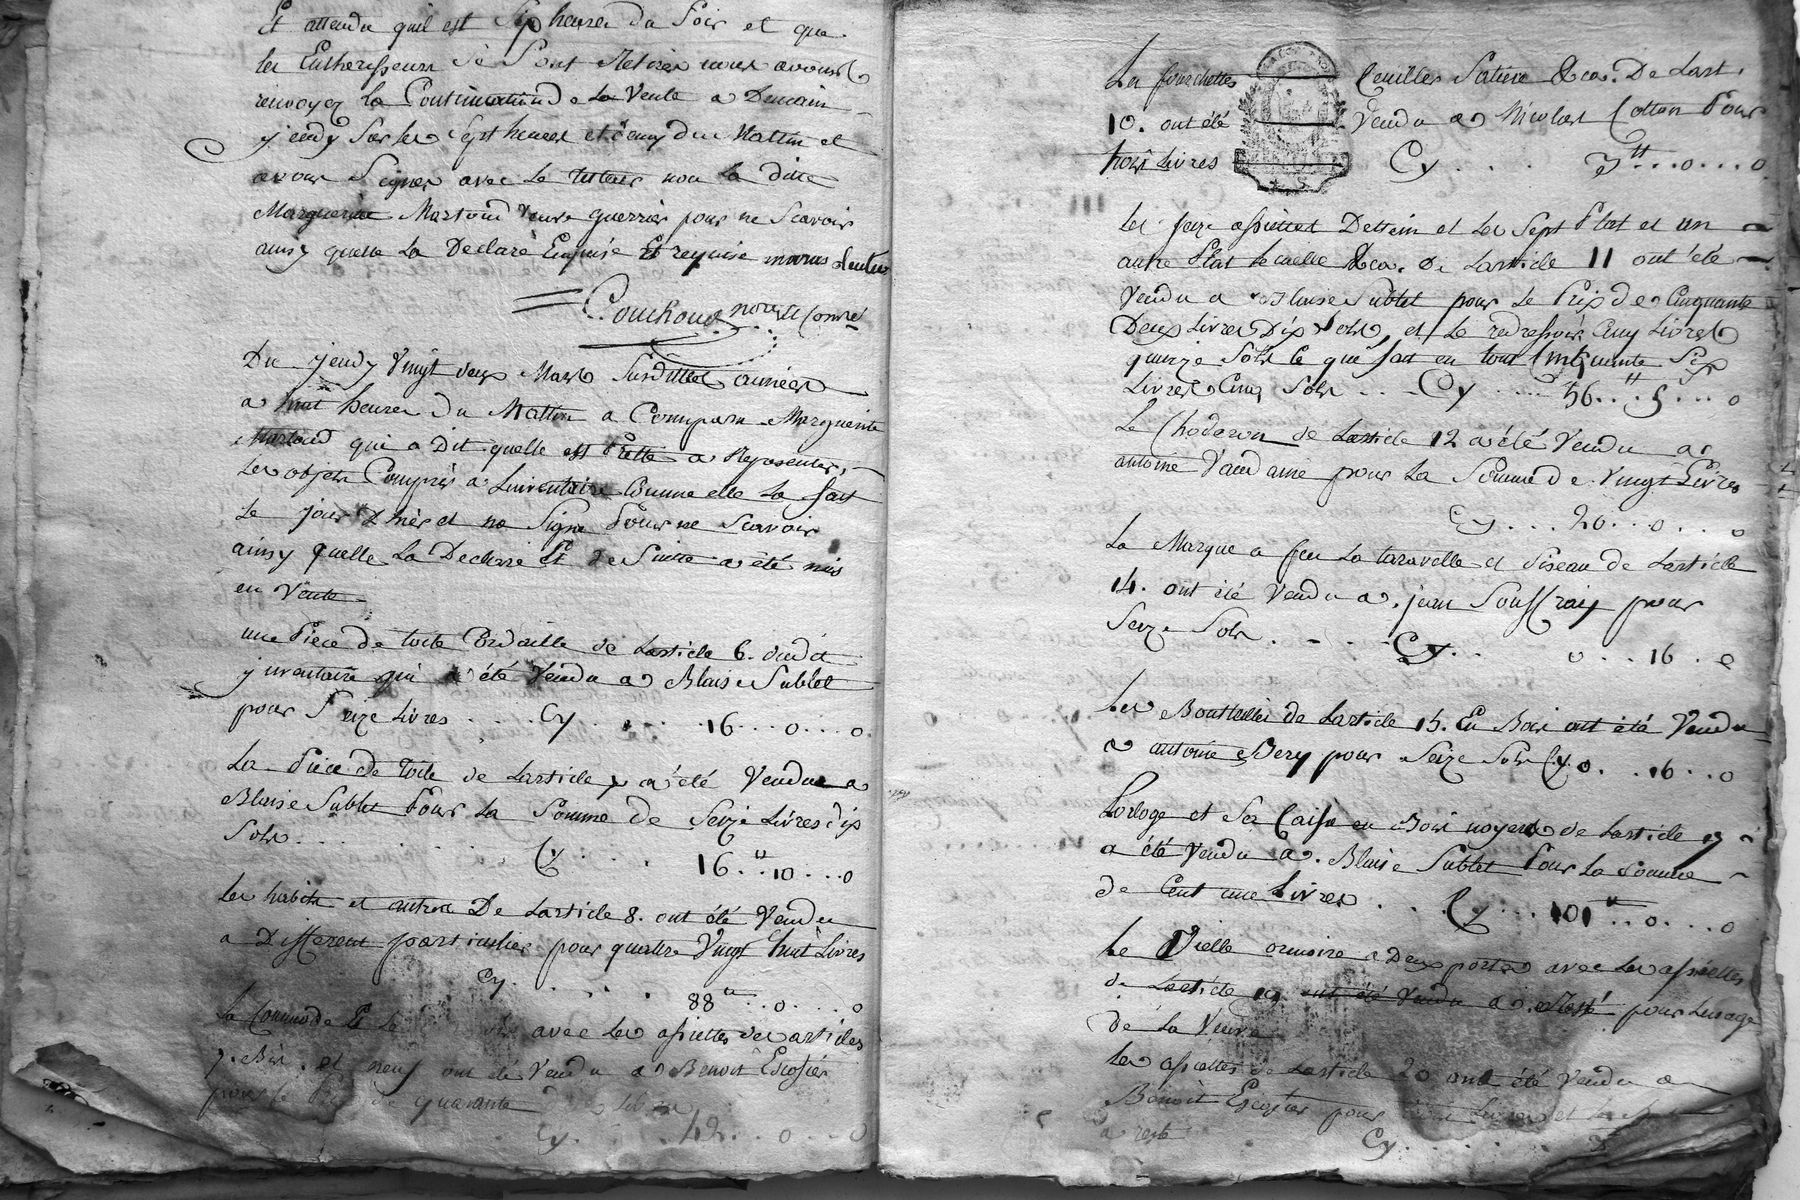 Et attendu quil est Six heures du Soir et que
les Encherisseurs Se Sont Retirés nous avons
renvoyez la Continuation de la Vente a Demain
jeudy Sur les Sept heures du Mattin et
avons Signés avec Le tuteur non La ditte
Marguerite Martoud Veuve guerrier pour ne Scavoir
ainsy quelle La Declaré Enquise Et requise
Couchoud
Du jeudy Vingt deux Mars Susdittes années
a huit heures Du Mattin a Comparu Marguerite
Martoud qui a Dit quelle est Prette a Representer
les objets Compris a Linventaire Comme elle La fait
Le jour D'hier et ne Signe Pour ne Scavoir
ainsy quelle La Declaré Et De Suitte a été mis
en Vente
une Piece de toile de Larticle 6. dudit
jnventaire qui a été Vendu a Blaise Sublet
pour Seize Livres . . . Cy . . . 16 . . 0 . . 0
La Piece de Toile de Larticle 7 a été Vendue a
Blaise Sublet Pour La Somme de Seize Livres dix
Sols . . . Cy . . . 16 . . 10 . . 0
Les habits et autres De Larticle 8. ont été Vendu
a Different particulier pour quatre Vingt huit Livres
Cy . . . 88 . . 0 . . 0
La Commode Et Le avec Les assiettes des articles
et neuf ont été Vendu a Benoit Escosier
pour le Prix de quarante
Cy . . . 0 . . 0
Les fourchettes Cuilles Saliere &ca. De Lart.
10. ont été Vendu a Nicolas Cotton Pour
trois Livres Cy . . . 3 . . 0 . . 0
Les seize assiettes Dettein et Les Sept Plat et un
autre Plat &ca. De Larticle 11 ont été
Vendu a Blaise Sublet pour Le Prix de Cinquante
Deux Livres Dix Sols, et Le redressoir Livres
quinze Sols Ce qui fait en tout Cinquante Six
Livres Cinq Sols . . . Cy . . . 56 . . 5 . . 0
Le Choderon de Larticle 12 a été Vendu a
antoine pour La Somme De Vingt Livres
Cy . . . 20 . . 0 . . 0
La Marque a feu La taravelle et Siseau de Larticle
14. ont été Vendu a jean pour
Seize Sols . . . Cy . . . 0 . . 16 . 0
Les Boutteilles de Larticle 15. En Bois ont été Vendu
a antoine Bery pour Seize Sols Cy. 0 . . 16 . . 0
Lorloge et Sa Caisse en Bois noyer de Larticle
a été Vendu a Blaise Sublet Pour La Somme
de Cent une Livres . . . Cy . . . 101 . . 0 . . 0
Le Vielle ormoire a Deux portes avec Les assiettes
de Larticle 19 ont été Vendu a pour Lusage
de La Veuve
Les assiettes de Larticle 20 ont été Vendu a
Benoit Escosier pour Livres et
a resté Cy . . .